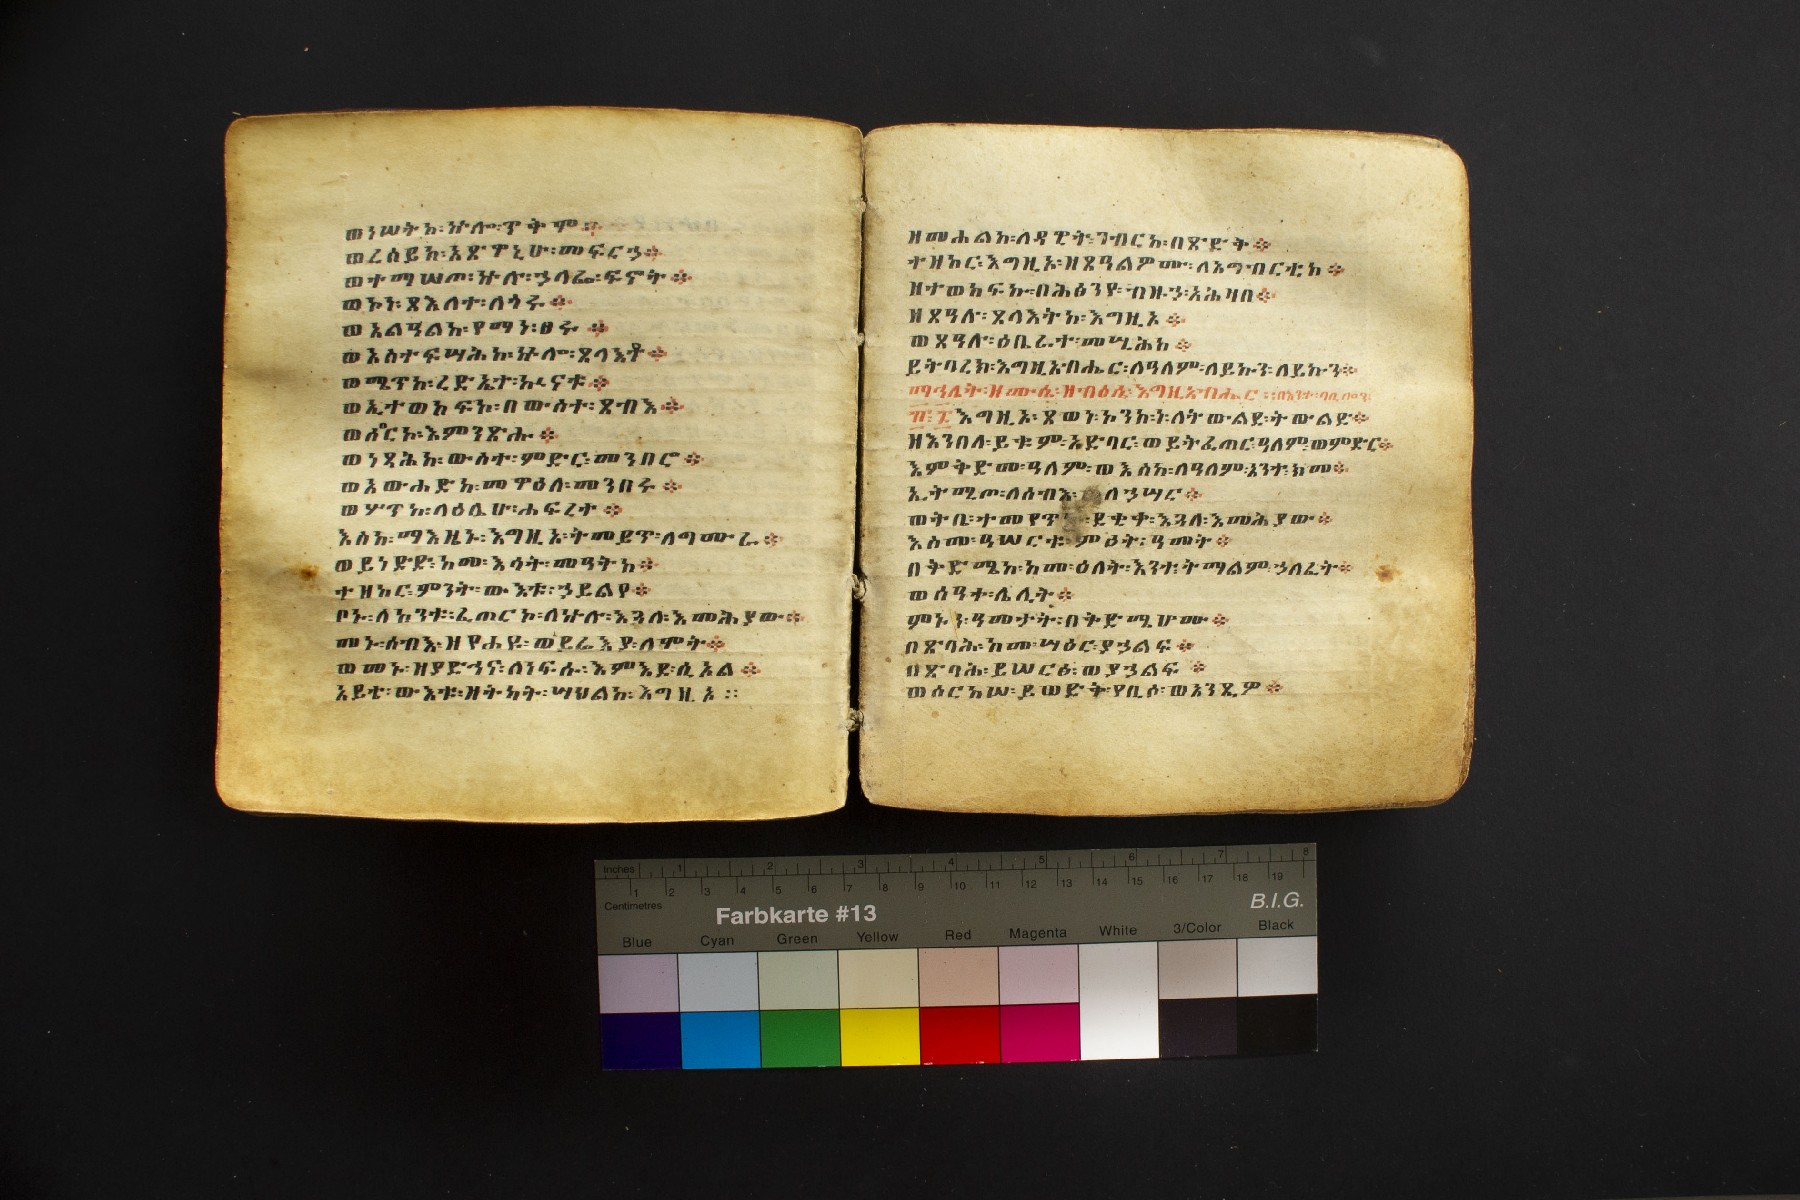 ወነሠትከ፡ ኵሎ፡ ጥቅሞ፨
ወረሰይከ፡ አጽዋኒሁ፡ መፍርኃ፨
ወተማሠጦ፡ ኵሉ፡ ኃላፌ፡ ፍኖት፨
ወኮነ፡ ጽእለተ፡ ለጎሩ፨
ወአልዓልከ፡ የማነ፡ ፀሩ፨
ወአስተፍሣሕከ፡ ኵሎ፡ ጸላእቶ፨
ወሜጥከ፡ ረድኤተ፡ ኵናቱ፨
ወኢተወከፍኮ፡ በውስተ፡ ጸብእ፨
ወሰዐርኮ፡ እምንጽሑ፨
ወነጻሕከ፡ ውስተ፡ ምድር፡ መንበሮ፨
ወአውሐድከ፡ መዋዕለ፡ መንበሩ፨
ወሦጥከ፡ ላዕሌሁ፡ ሐፍረተ፨
እስከ፡ ማእዜኑ፡ እግዚኦ፡ ትመይጥ፡ ለግሙራ፨
ወይነድድ፡ ከመ፡ እሳት፡ መዓትከ፨
ተዘከር፡ ምንት፡ ውእቱ፡ ኃይልየ፨
ቦኑ፡ ለከንቱ፡ ፈጠርኮ፡ ለኵሉ፡ እጓለ፡ እመሕያው፨
መኑ፡ ሰብእ፡ ዘየሐዩ፡ ወይሬእያ፡ ለሞት፨
ወመኑ፡ ዘያድኅና፡ ለነፍሱ፡ እምእደ፡ ሲኦል፨
አይቴ፡ ውእቱ፡ ዘትካት፡ ሣህልከ፡ እግዚኦ ፡፡
ዘመሐልከ፡ ለዳዊት፡ ገብርከ፡ በጽድቅ፨
ተዘከር፡ እግዚኦ፡ ዘጸዓልዎሙ፡ ለአግብርቲከ፨
ዘተወከፍኩ፡ በሕፅንየ፡ ብዙኃ፡ አሕዛበ፨
ዘጸዓሉ፡ ጸላእትከ፡ እግዚኦ፨
ወጸዓሉ፡ ዕቤራተ፡ መሢሕከ፨
ይትባረክ፡ እግዚአብሔር፡ ለዓለም፡ ለይኩን፡ ለይኩን፨
ማኅሌት፡ ዘሙሴ፡ ዘብዕሴ፡ እግዚአብሔር፡
፹፱ እግዚኦ፡ ጸወነ፡ ኮንከነ፡ ለትውልደ፡ ትውልድ፨
ዘእንበለ፡ ይቁም፡ አድባር፡ ወይትፈጠር፡ ዓለም፡ ወምድር፨
እምቅድመ፡ ዓለም፡ ወእስከ፡ ለዓለም፡ አንተ፡ ክመ፨
ኢትሚጦ፡ ለሰብእ፡ ለኃሣር፨
ወትቤ፡ ተመየጡ፡ ደቂቀ፡ እጓለ፡ እመሕያው፨
እስመ፡ ዓሠርቱ፡ ምዕት፡ ዓመት፨
በቅድሜከ፡ ከመ፡ ዕለት፡ እንተ፡ ትማልም፡ ኃለፈት፨
ወሰዓተ፡ ሌሊት፨
ምኑን፡ ዓመታት፡ በቅድሜሆሙ፨
በጽባሕ፡ ከመ፡ ሣዕር፡ ያኃልፍ፨
በጽባሕ፡ ይሠርፅ፡ ወያኃልፍ፨
ወሰርከሠ፡ ይወድቅ፡ የቢሶ፡ ወአንጺዎ፨
Inches 1 2 3 4 5 6 7 8
1 2 3 4 5 6 7 8 9 10 11 12 13 14 15 16 17 18 19
Centimetres
Farbkarte #13
B.I.G.
Blue Cyan Green Yellow Red Magenta White 3/Color Black